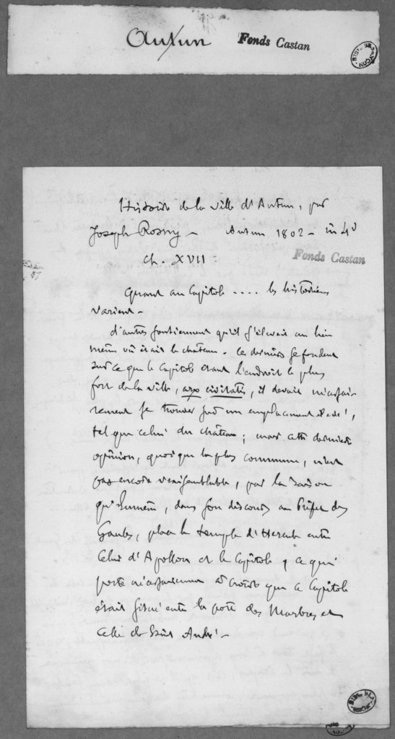 Autun
Fonds Castan
Histoire de la ville d'Autun, par
Joseph Rosny — Autun 1802 – in 4°
Ch. XVII :
Fonds Castan
Quant au Capitole .... les historiens
varient –
d'autres soutiennent qu'il s'élevait au lieu
même où était le château. Ce dernier se fondent
sur ce que le Capitole étant l'endroit le plus
fort de la ville, arx civitatis, il devait nécessai-
rement se trouver sur un emplacement élevé,
tel que celui du château ; mais cette dernière
opinion, quoique la plus commune, n'est
pas encore vraisemblable, par la raison
qu'Eumène, dans son discours au Préfet des
Gaules, place le temple d'Hercule entre
celui d'Apollon et le Capitole, ce qui
porte nécessairement à croire que le Capitole
était situé entre la porte des Marbres et
celle de Saint André –